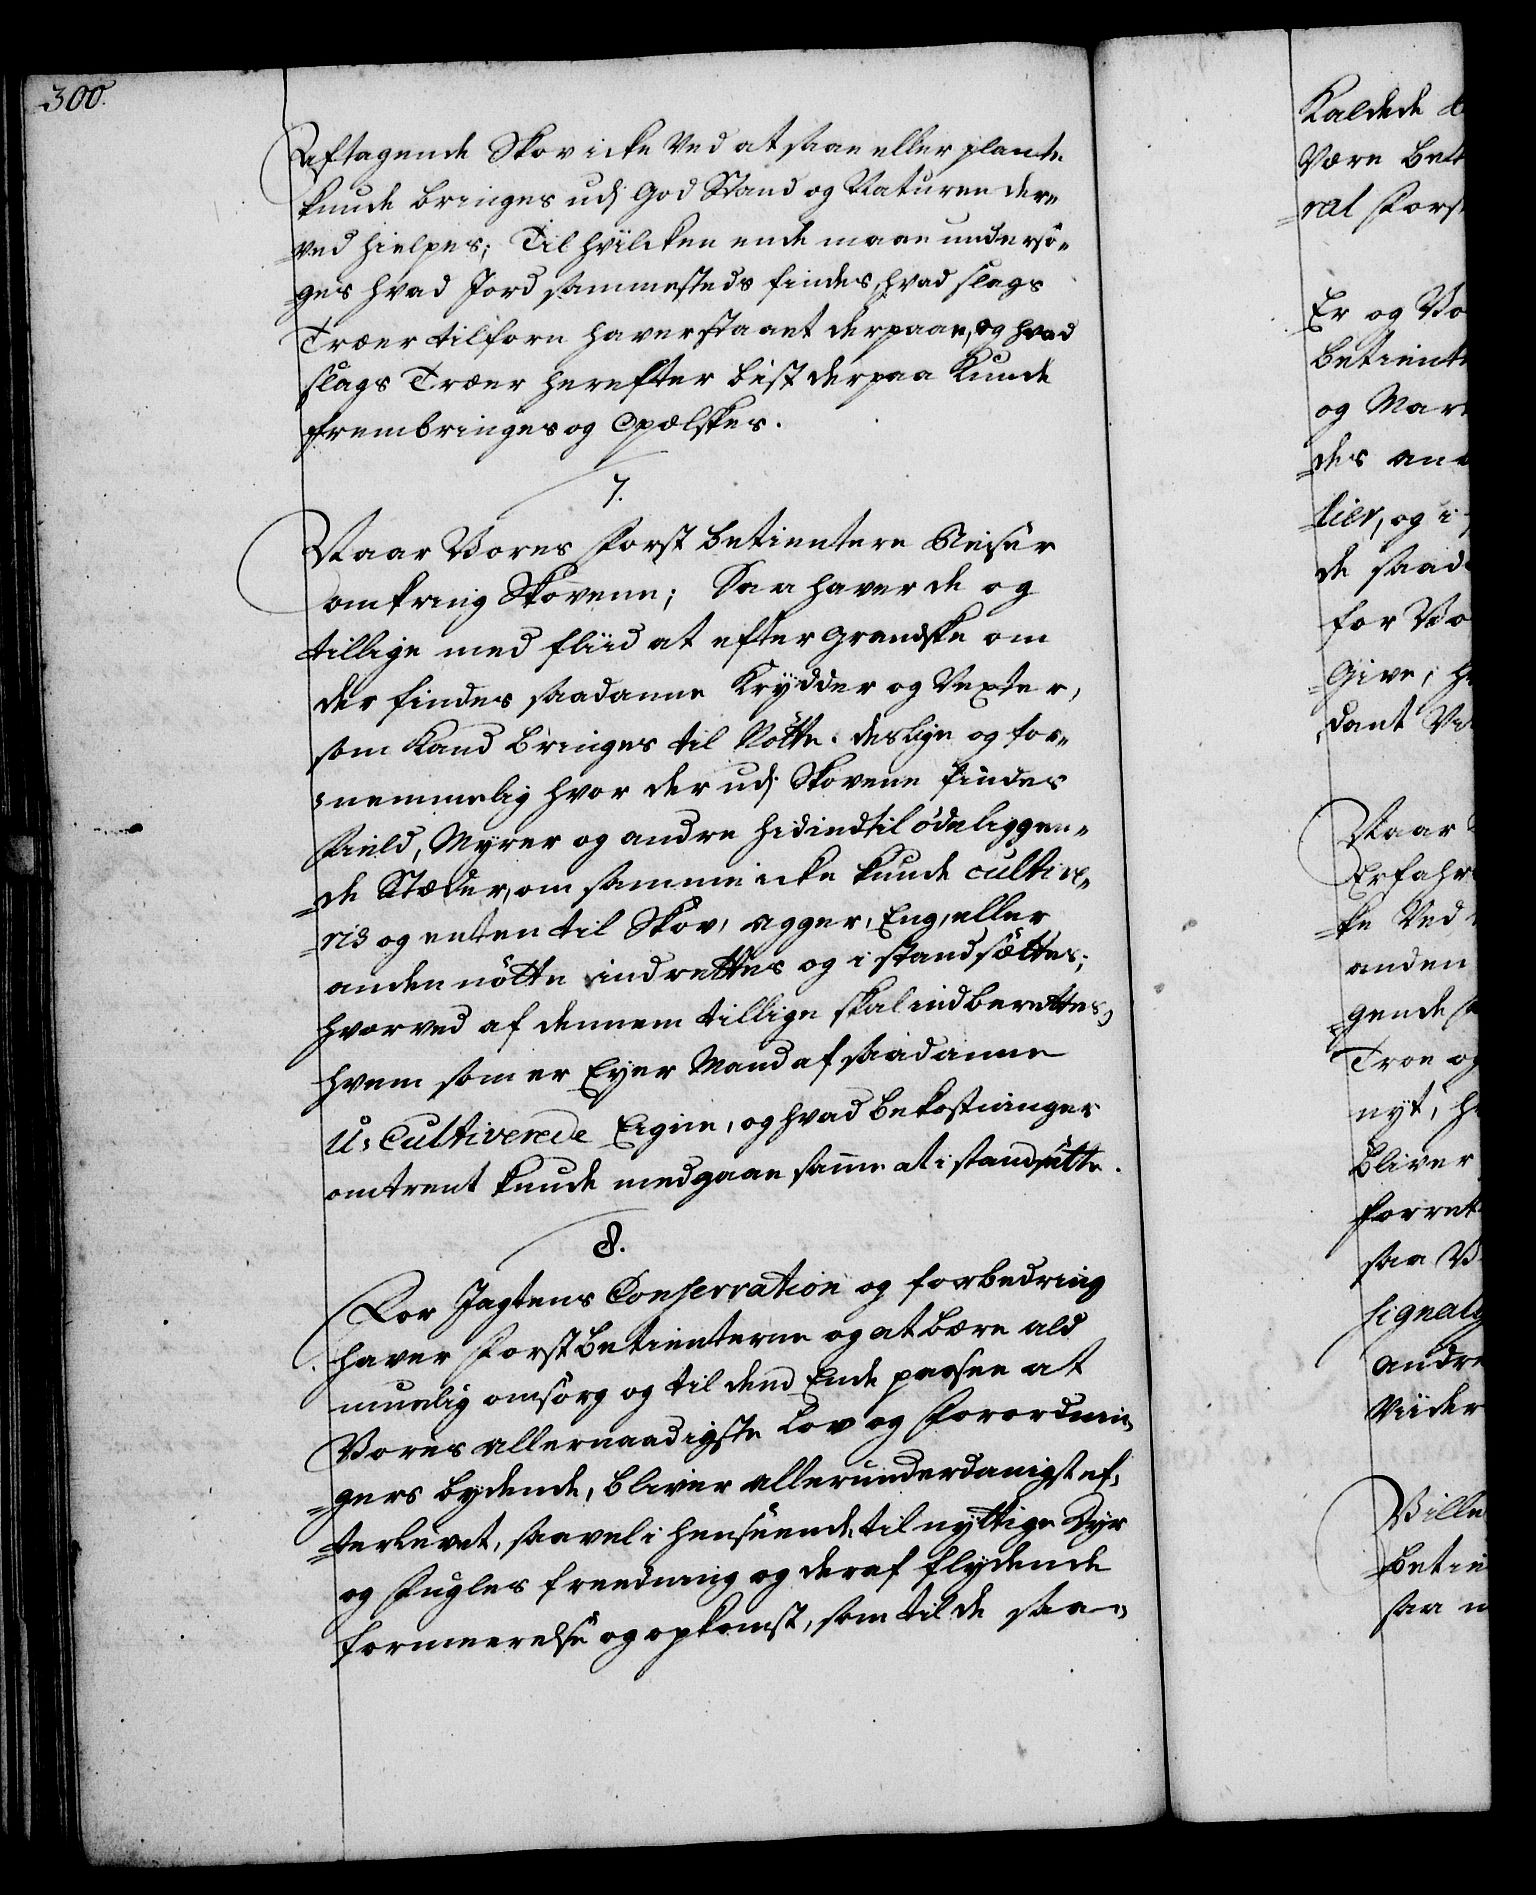 300.
Aftagende Skov icke ved at saae eller plante
kunde bringes udj God Stand og Naturen der„
„ved hielpes; Til hvilcken ende maae undersö„
„ges hvad Jord sammesteds findes, hvad slags
Træer tilforn haver staaet derpaae, og hvad
slags Træer herefter best derpaa kunde
frembringes og Opælskes.
7.
Naar Vores Forst betientere Reiser
omkring Skovene; Saa haver de og
tillige med fliid at efter grandske om
der findes saadanne Krÿdder og Vexter,
som kand bringes til Nötte. deslige og for„
„nemmelig hvor der udj Skovene findes
Field, Myrer og andre hidindtil ödeliggen„
„de Stæder, om samme icke kunde cultive„
„ris og enten til Skov, Agger, Eng, eller
anden nötte indrettes og i stand sættes;
hvorved af dennem tillige skal indberettes,
hvem som er Eyer Mand af saadanne
U: Cultiverede Eigne, og hvad bekostninger
omtrent kunde medgaae same at i standsætte.
8.
For Jagtens Conservation og forbedring
haver Forst betienterne og at bære ald
muelig omsorg og til dend Ende passe at
Vores allernaadigste Lov og Forordnin„
„gers bydende, bliver allerunderdanigst ef„
„terlevet, saavel i henseende, til nyttige Dyr
og Fugles freedning og deraf flydende
formeerelse og opkomst, som til de saa„
Kaldede
Være
„ral Forst
Er og Vo
betient
og
des
lier, og i
de saad
for Vo
Give,
dant
Naar
Erfahr
ke Ved
anden
gende
Troe og
nyt,
bliver
forret
saa V
signaly
andre
Viider
Ville
betie
saa